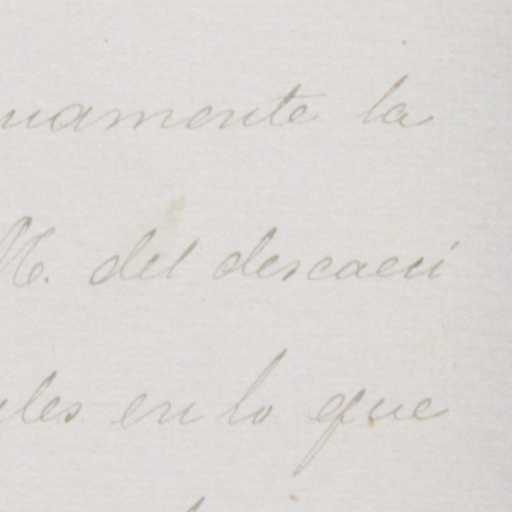 uamente la
M. del descaeci
les en lo que